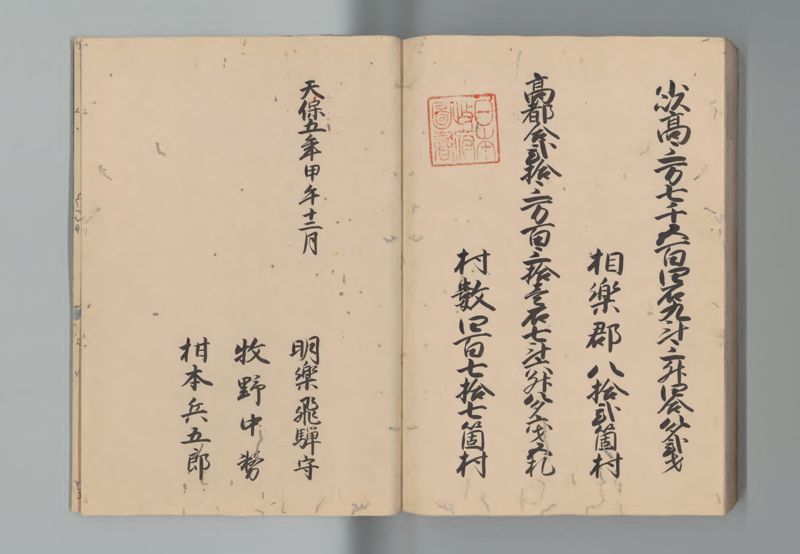 小以高三万七千五百四石九斗三升四合八夕弐才
相樂郡 八拾弐箇村
高都合弐拾三万百三拾壱石七斗六升八夕六才五札
村數四百七拾七箇村
日本
政府
圖書
天保五年甲午十二月
明樂飛騨守
牧野中務
柑本兵五郎